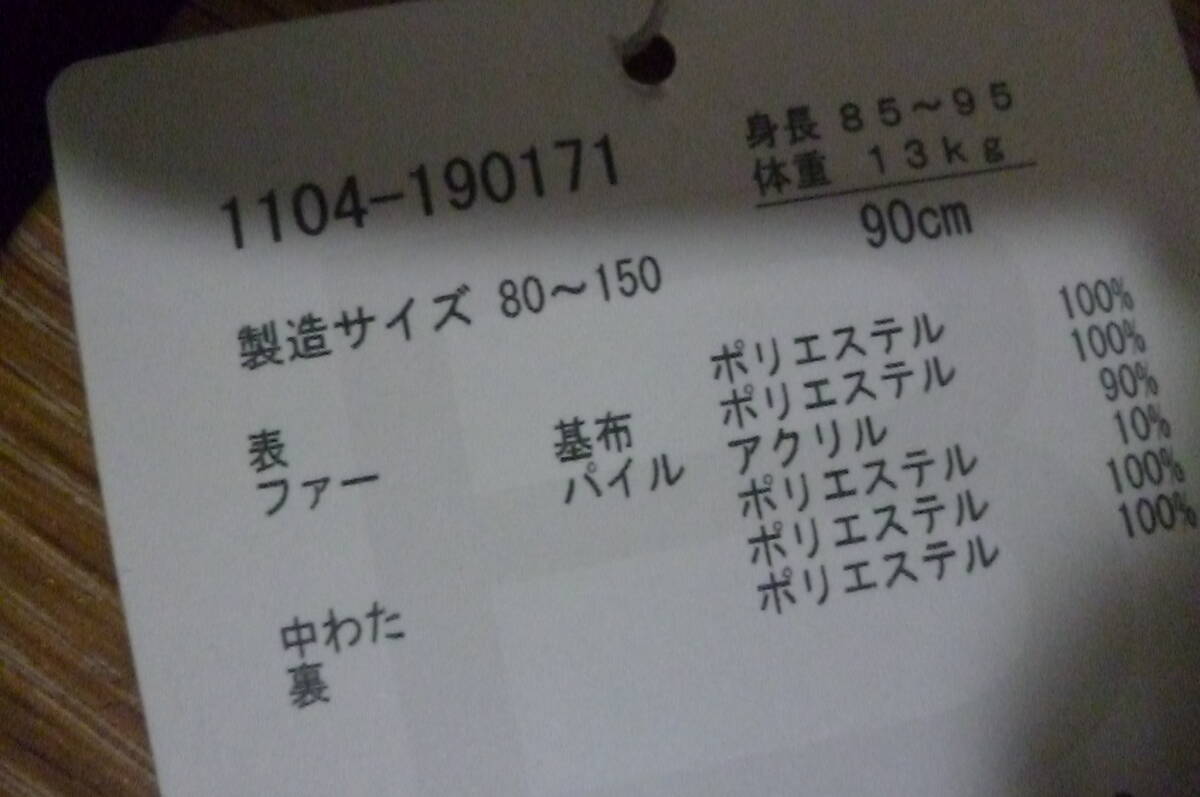 1104-190171
身長 85～95
体重 13kg
90cm
製造サイズ 80～150
表 ポリエステル 100%
ファー 基布 ポリエステル 100%
パイル アクリル 90%
ポリエステル 10%
中わた ポリエステル 100%
裏 ポリエステル 100%